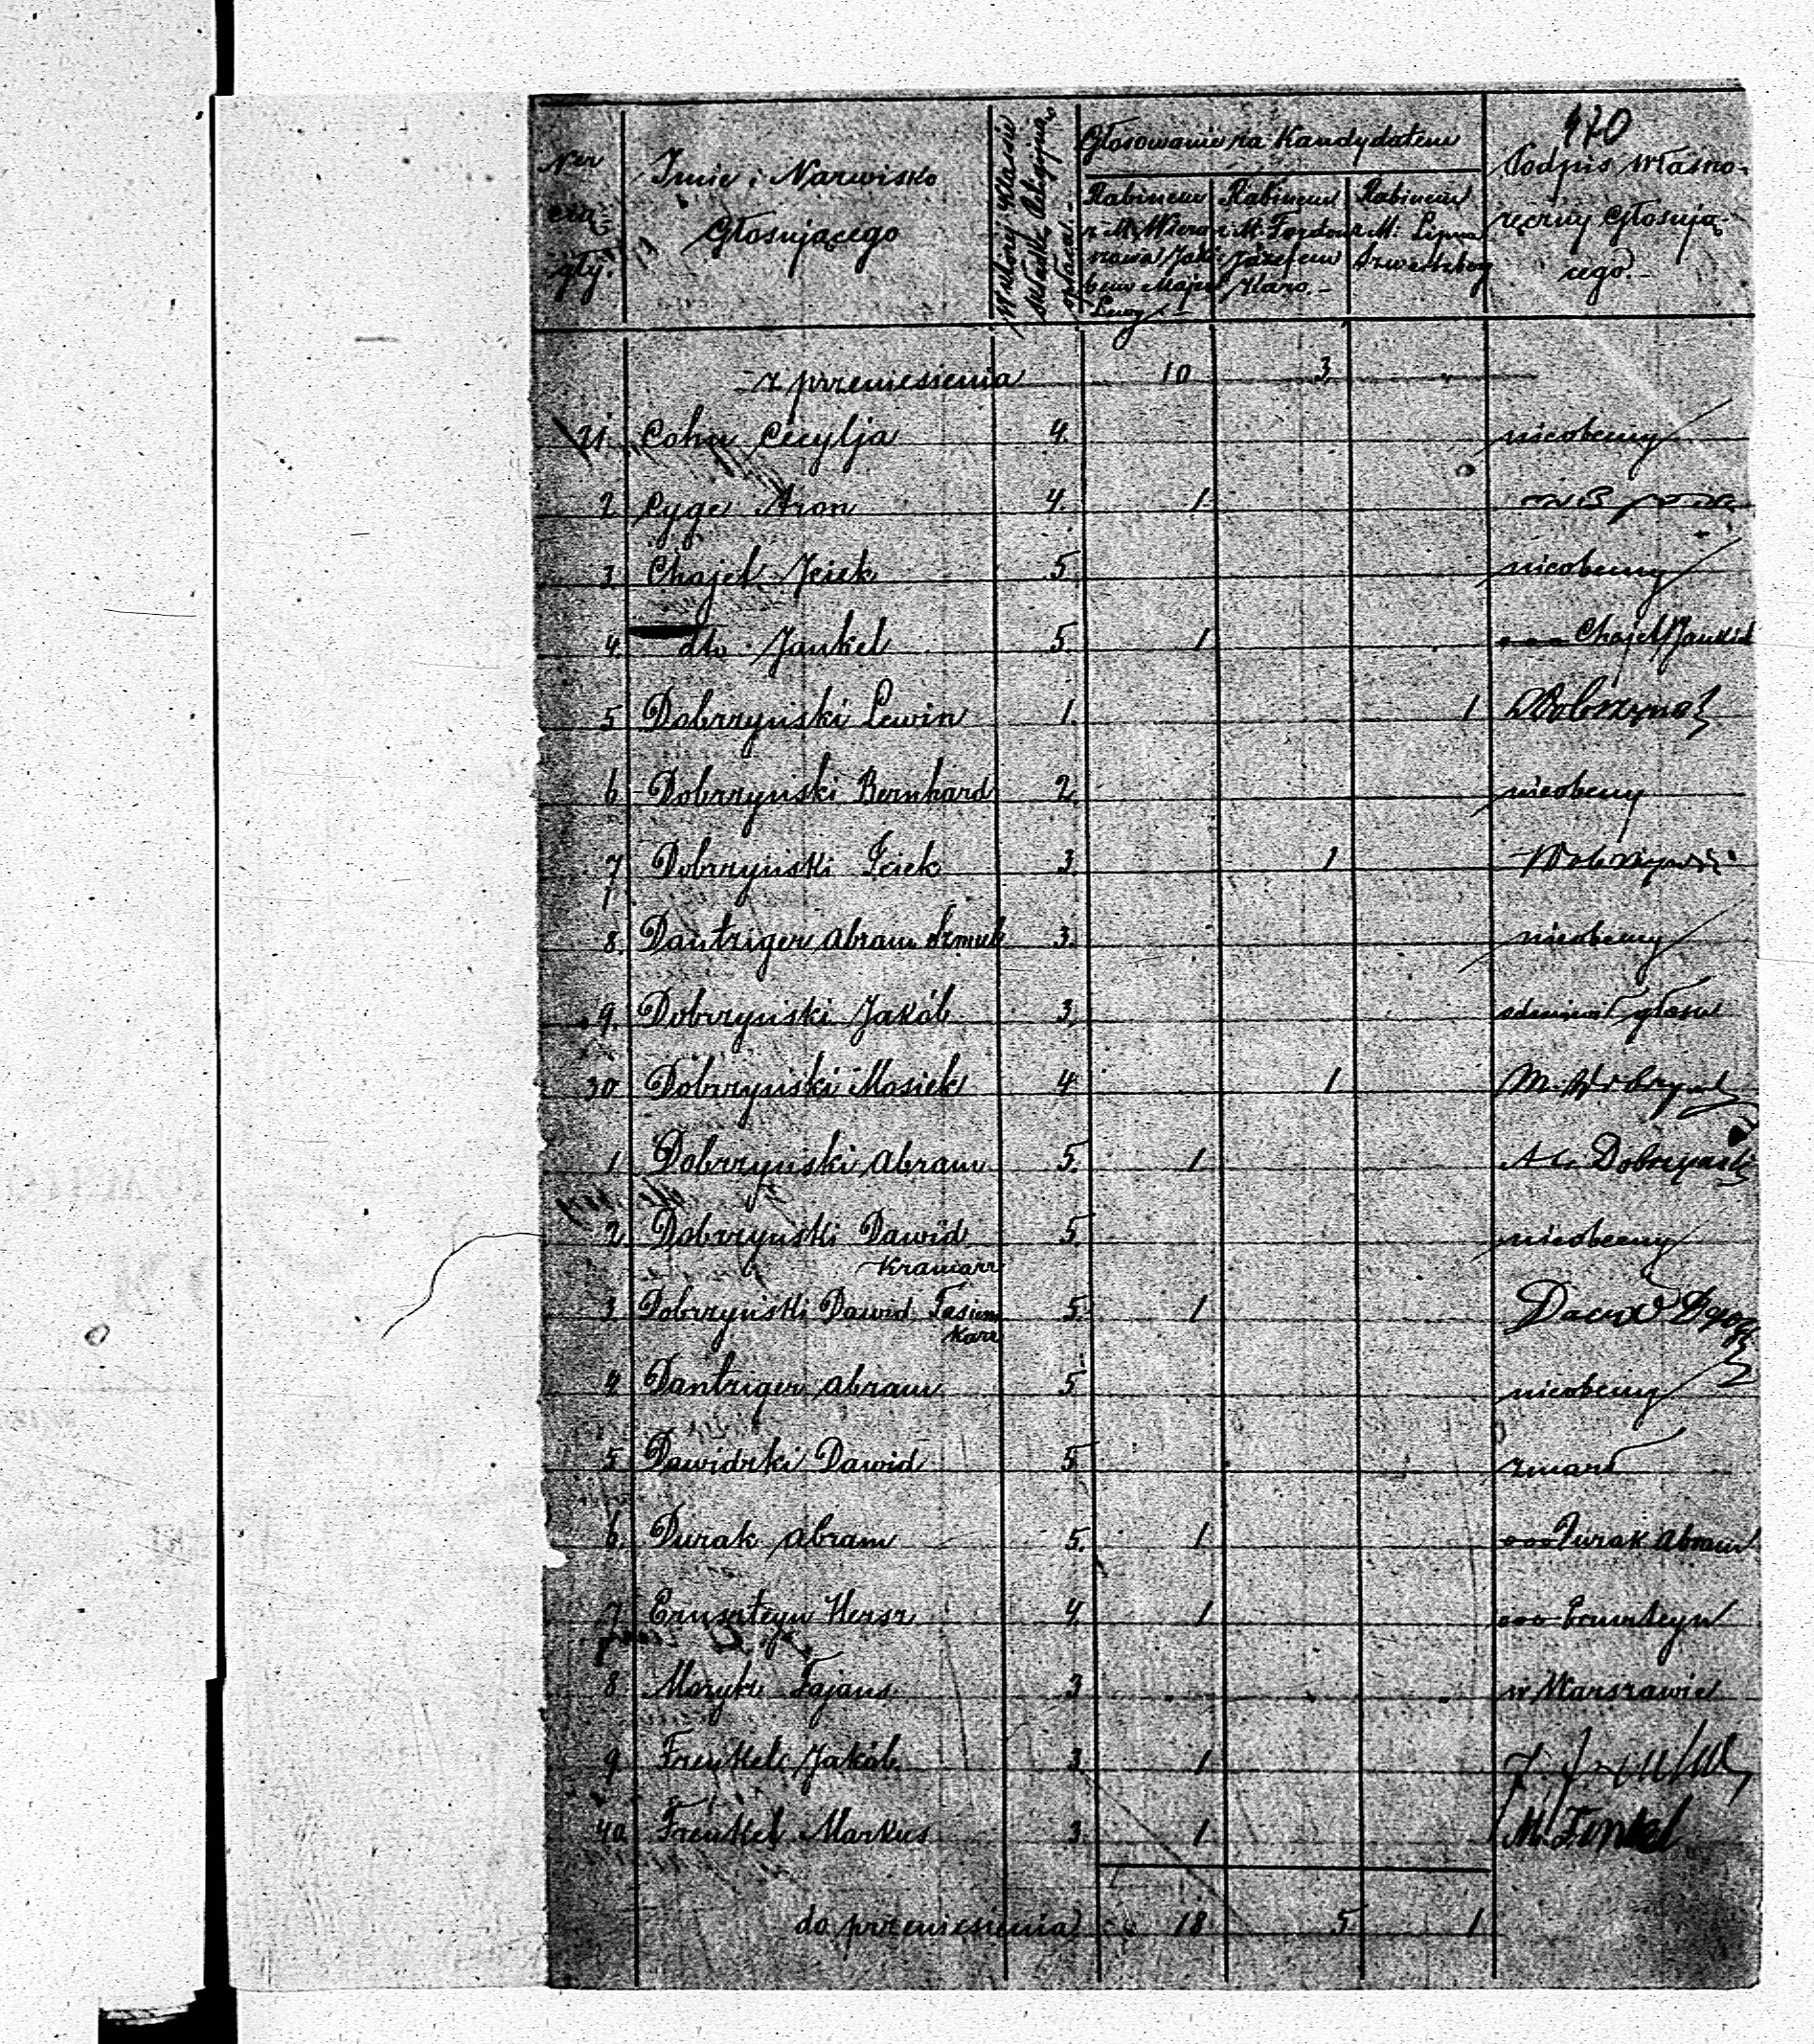 470
Ner
cią-
gły.
Imie i Nazwisko
Głosującego
W której klasie
składkę Religijną
opłaca.-
Głosowanie za Kandydatem
Rabinem
z M. Wiero
szowa Jakó
bem Majer
Lewy
Rabinem
z M. Fordonu
Józefem
Karo.-
Rabinem
z M: Lipna
Podpis własno-
ręczny Głosują-
cego.-
z przeniesienia 10 3 "
21. Cohn Cecylja 4. nieobecny
2. Cyge Aron 4. 1
3 Chajet Iciek 5 nieobecny
4. dto Jankel 5. 1 ooo Chajet Jankel
5 Dobrzyński Lewin 1. 1
6 Dobrzyński Bernhard 2. nieobecny
7 Dobrzyński Iciek 3. 1
8. Dantziger Abram Szmul 3. nieobecny
9. Dobrzyński Jakób 3. odmówił głosu
30 Dobrzyński Mosiek 4 1
1 Dobrzyński Abram 5. 1 Dobrzynski
2 Dobrzyński Dawid 5. nieobecny
Kramarz
3. Dobrzyński Dawid Tasiem 5. 1
karz
4. Dantziger Abram 5 nieobecny
5 Dawidzki Dawid 5 zmarł
6. Durak Abram 5. 1 ooo Durak Abram
7 Ernszteyn Hersz 4 1 ooo Ernszteyn
8 Maryk Fajans 3 " " " w Warszawie
9 Frenkel Jakób 3. 1
40 Frenkel Markus 3. 1 M. Frenkel
do przeniesienia 18 5 1